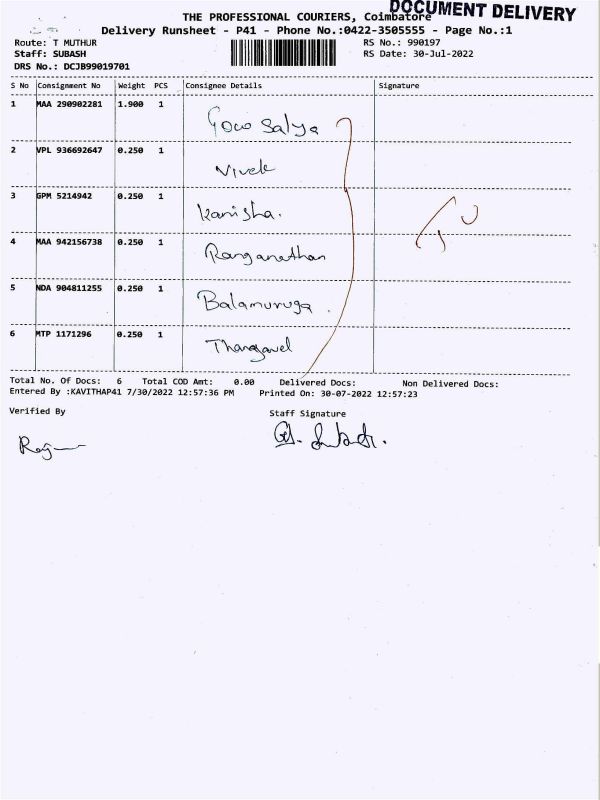 DOCUMENT DELIVERY
THE PROFESSIONAL COURIERS, Coimbatore
Delivery Runsheet - P41 - Phone No.:0422-3505555 - Page No.:1
Route: T MUTHUR RS No.: 990197
Staff: SUBASH RS Date: 30-Jul-2022
DRS No.: DCJB99019701
S No Consignment No Weight PCS Consignee Details Signature
1 MAA 290902281 1.900 1 Gowo Salya
2 VPL 936692647 0.250 1 Vivek
3 GPM 5214942 0.250 1 Kanisha.
4 MAA 942156738 0.250 1 Ranganathan
5 NDA 904811255 0.250 1 Balamuruga .
6 MTP 1171296 0.250 1 Thangavel
Total No. Of Docs: 6 Total COD Amt: 0.00 Delivered Docs: Non Delivered Docs:
Entered By :KAVITHAP41 7/30/2022 12:57:36 PM Printed On: 30-07-2022 12:57:23
Verified By Staff Signature